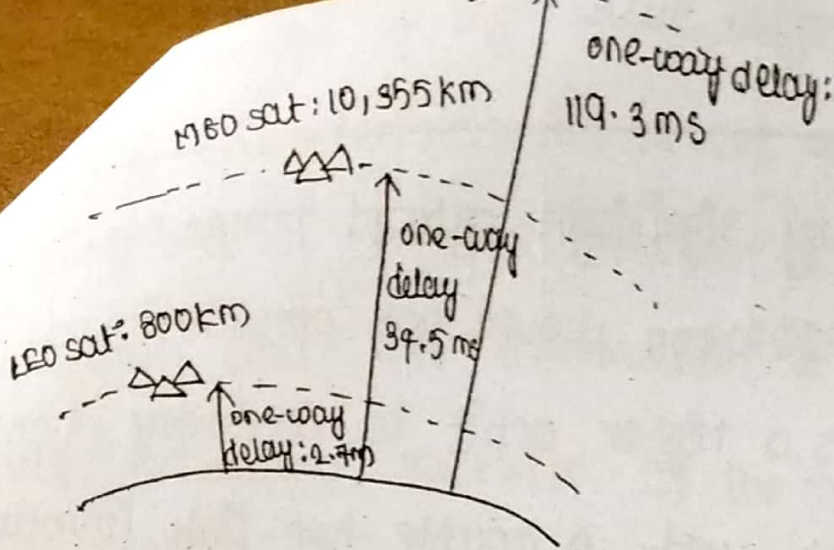 one-way delay:
119.3 ms
MEO sat: 10,355km
one-way
delay
34.5 ms
LEO sat: 800km
one-way
delay: 2.7m